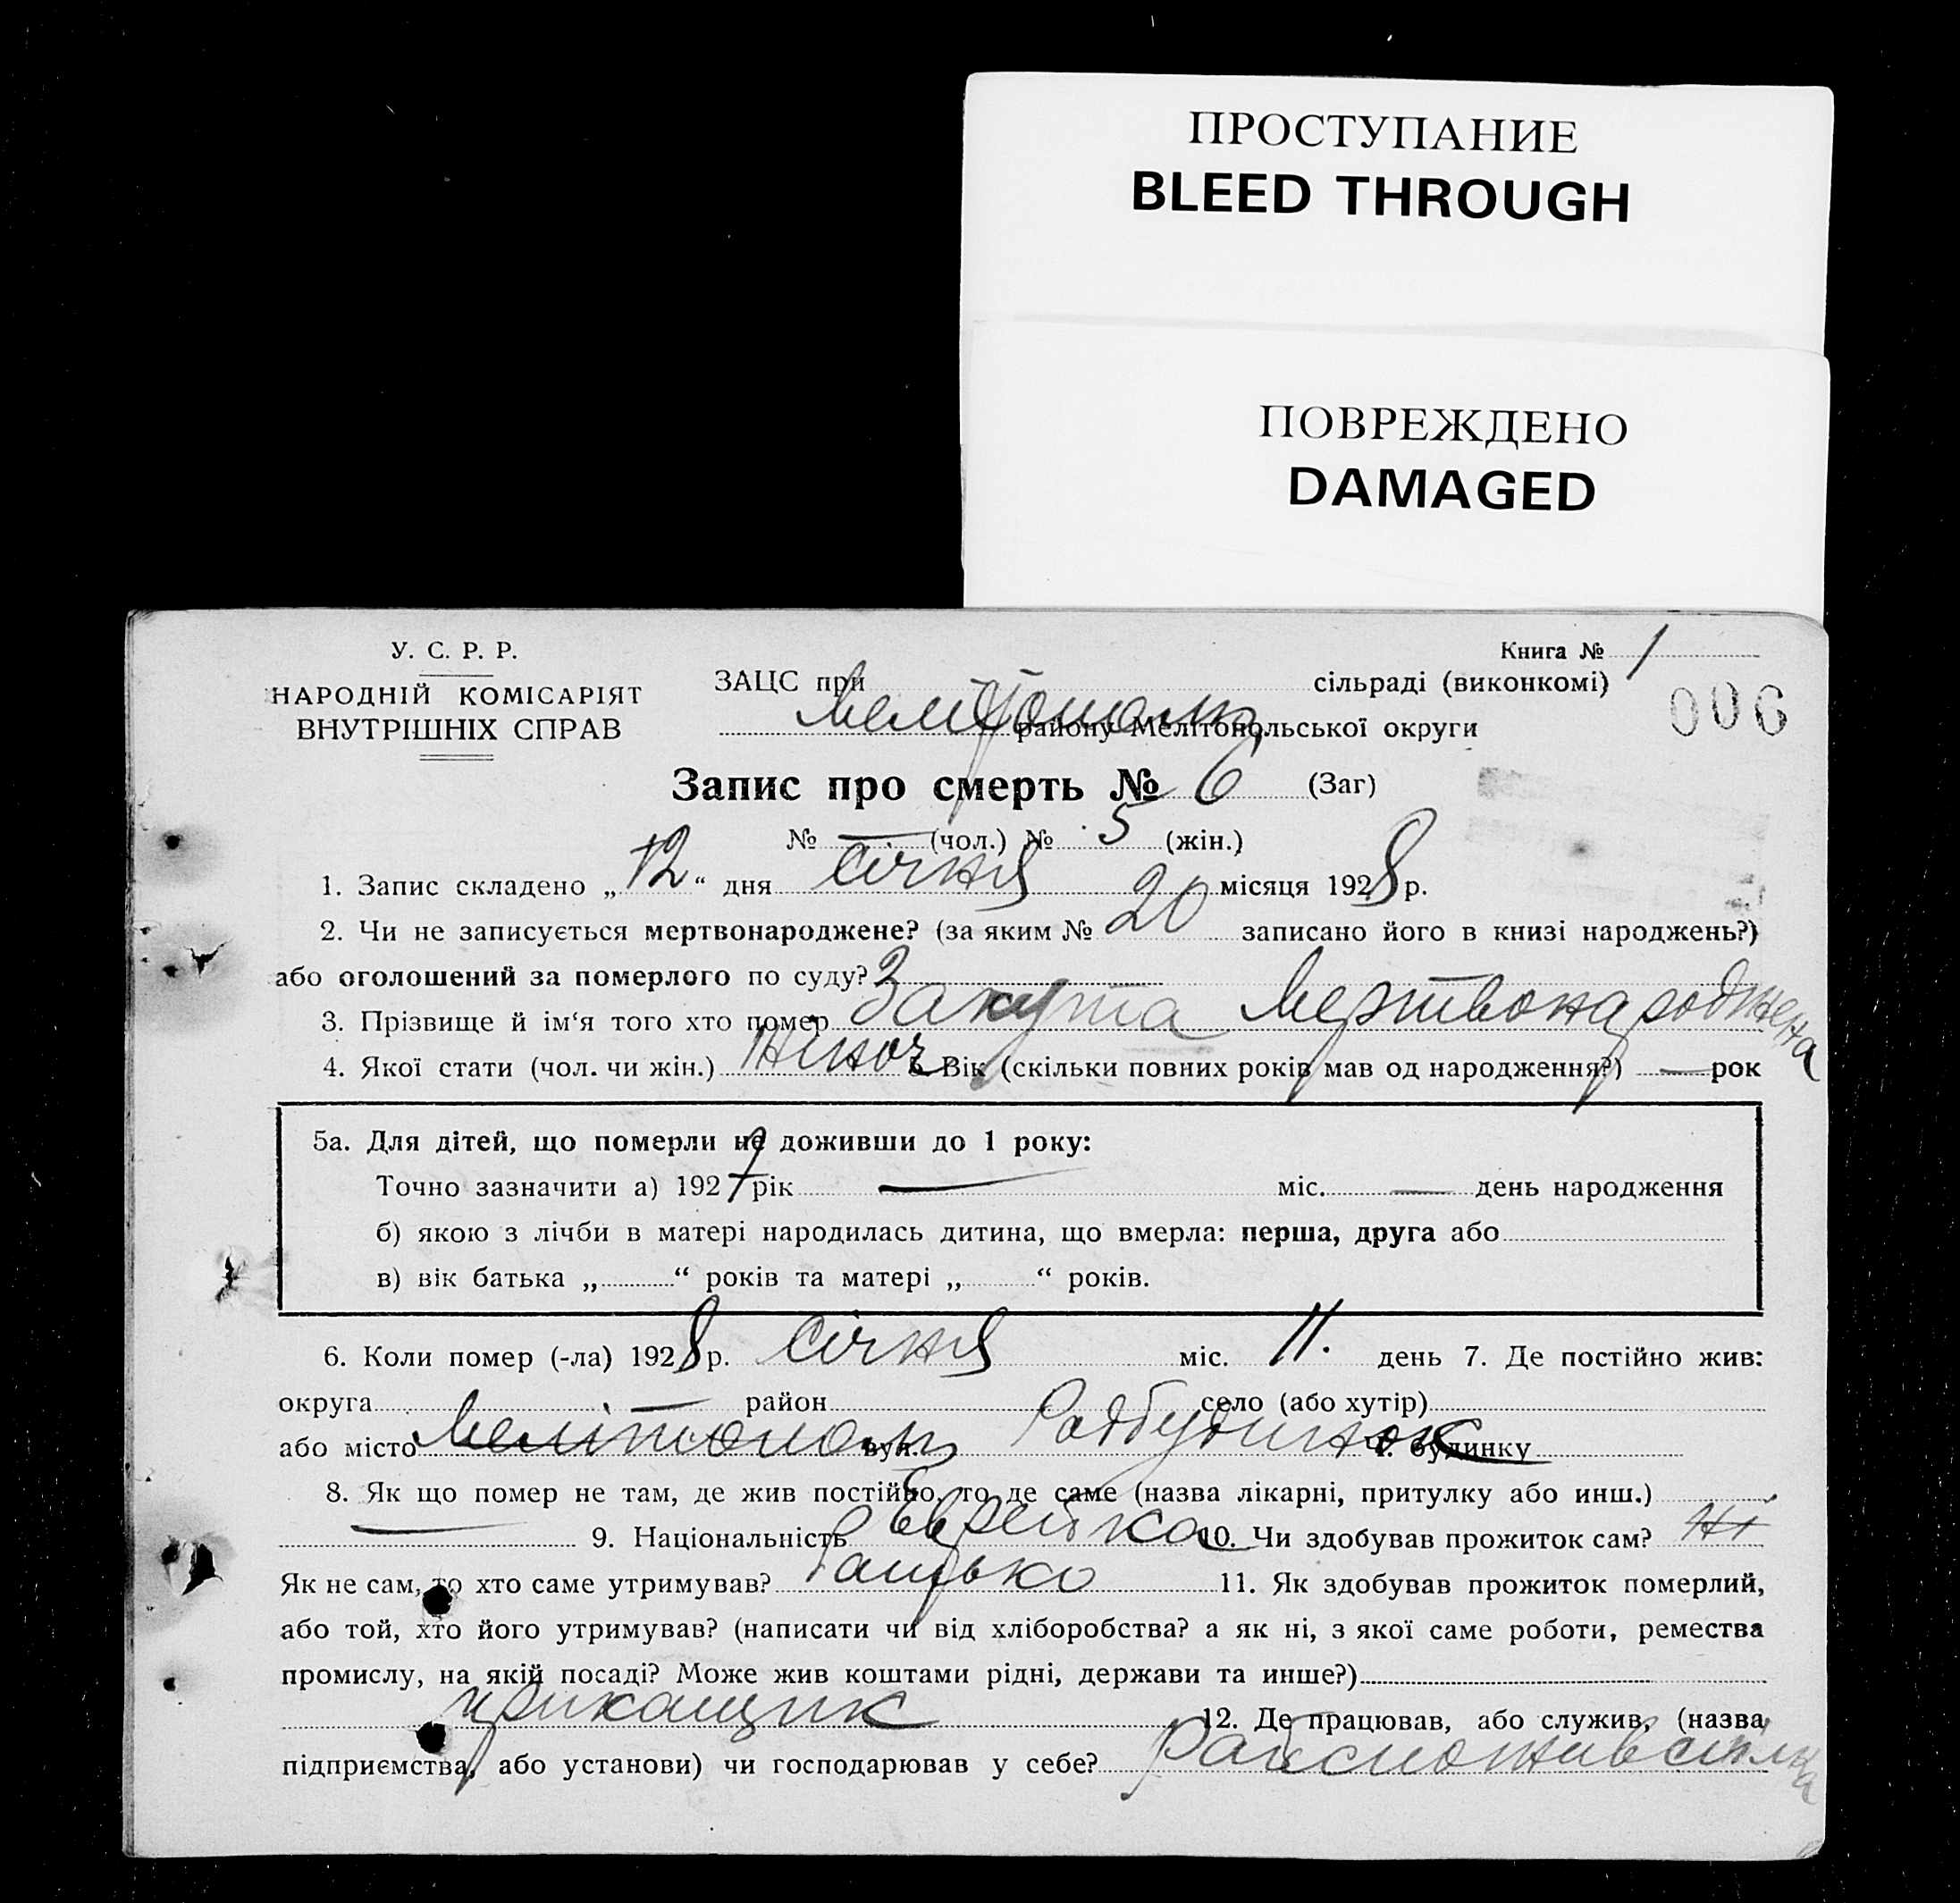 ПРОСТУПАНИЕ
BLEED THROUGH
ПОВРЕЖДЕНО
DAMAGED
У. С. Р. Р.
НАРОДНІЙ КОМІСАРІЯТ
ВНУТРІШНІХ СПРАВ
Книга № 1
ЗАЦС при Мелітополь сільраді (виконкомі)
району Мелітопольської округи
006
Запис про смерть № 6 (Заг)
№ — (чол.) № 5 (жін.)
1. Запис складено „12“ дня січня місяця 1928 р.
2. Чи не записується мертвонароджене? (за яким № 20 записано його в книзі народжень?)
або оголошений за померлого по суду?
3. Прізвище й ім'я того хто помер Закута Мертвонароджена
4. Якої стати (чол. чи жін.) жіноч 5. Вік (скільки повних років мав од народження?) — рок
5а. Для дітей, що померли не доживши до 1 року:
Точно зазначити а) 1927 рік — міс. — день народження
б) якою з лічби в матері народилась дитина, що вмерла: перша, друга або
в) вік батька „ “ років та матері „ “ років.
6. Коли помер (-ла) 1928 р. січня міс. 11. день 7. Де постійно жив:
округа — район село (або хутір)
або місто Мелітополь вул. Родбудинок ч. будинку
8. Як що помер не там, де жив постійно, то де саме (назва лікарні, притулку або инш.)
— 9. Національність Єврейка 10. Чи здобував прожиток сам? ні
Як не сам, то хто саме утримував? батько 11. Як здобував прожиток померлий,
або той, хто його утримував? (написати чи від хліборобства? а як ні, з якої саме роботи, ремества
промислу, на якій посаді? Може жив коштами рідні, держави та инше?)
прикащик 12. Де працював, або служив, (назва
підприємства, або установи) чи господарював у себе?